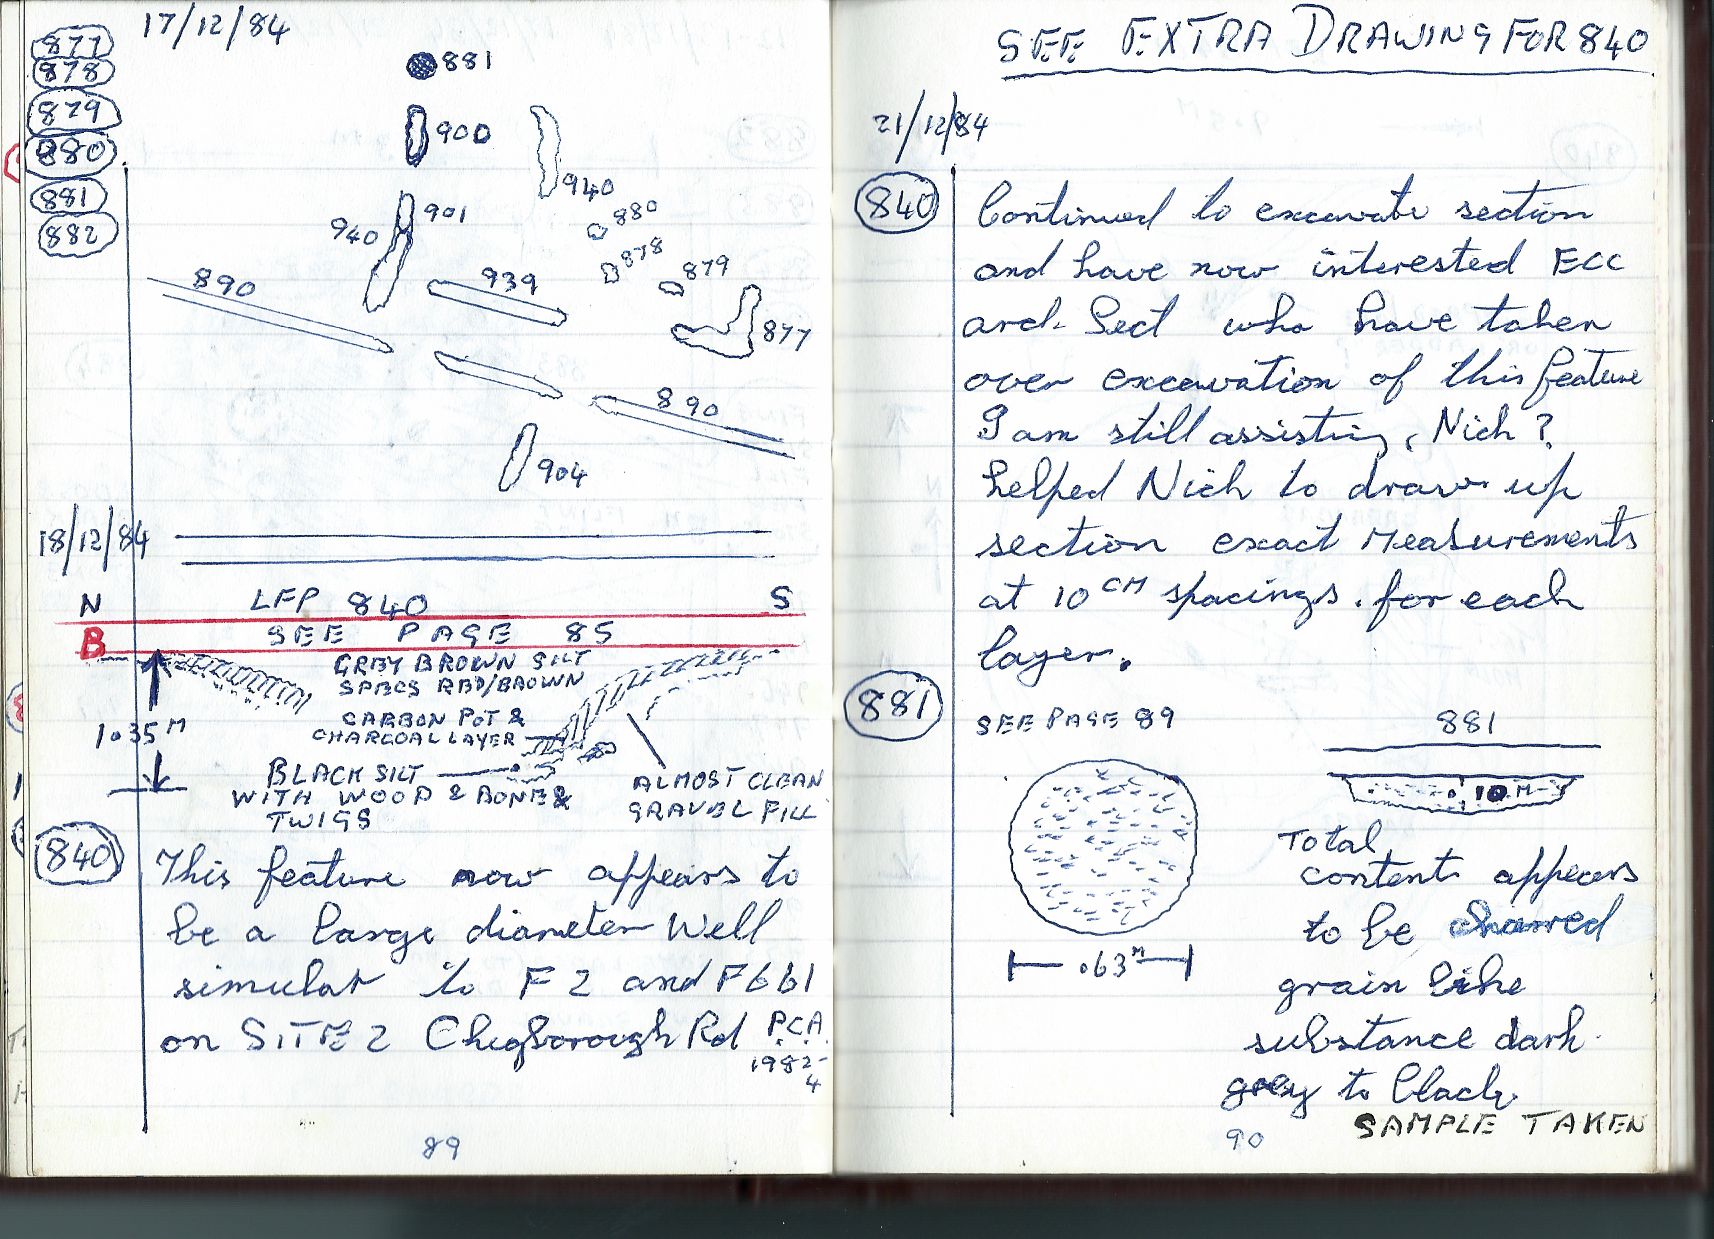 17/12/84
877
878
879
880
881
882
881
900
940
901
940
880
878
879
890
939
877
890
904
18/12/84
N LFP 840 S
B SEE PAGE 85
GREY BROWN SILT
SPECS RED/BROWN
CARBON POT &
CHARCOAL LAYER
1.35M
BLACK SILT
WITH WOOD & BONE &
TWIGS
ALMOST CLEAN
GRAVEL FILL
840
This feature now appears to
be a large diameter Well
simular to F2 and F661
on SITE 2 Chigborough Rd P.C.A.
1982-
4
89
SEE EXTRA DRAWING FOR 840
21/12/84
840
Continued to excavate section
and have now interested ECC
arch. Sect who have taken
over excavation of this feature
I am still assisting, Nich?
helped Nich to draw up
section exact Measurements
at 10 CM spacings. for each
layer.
881
SEE PAGE 89
881
.10 M
.63M
Total
content appears
to be charred
grain like
substance dark.
grey to black
SAMPLE TAKEN
90